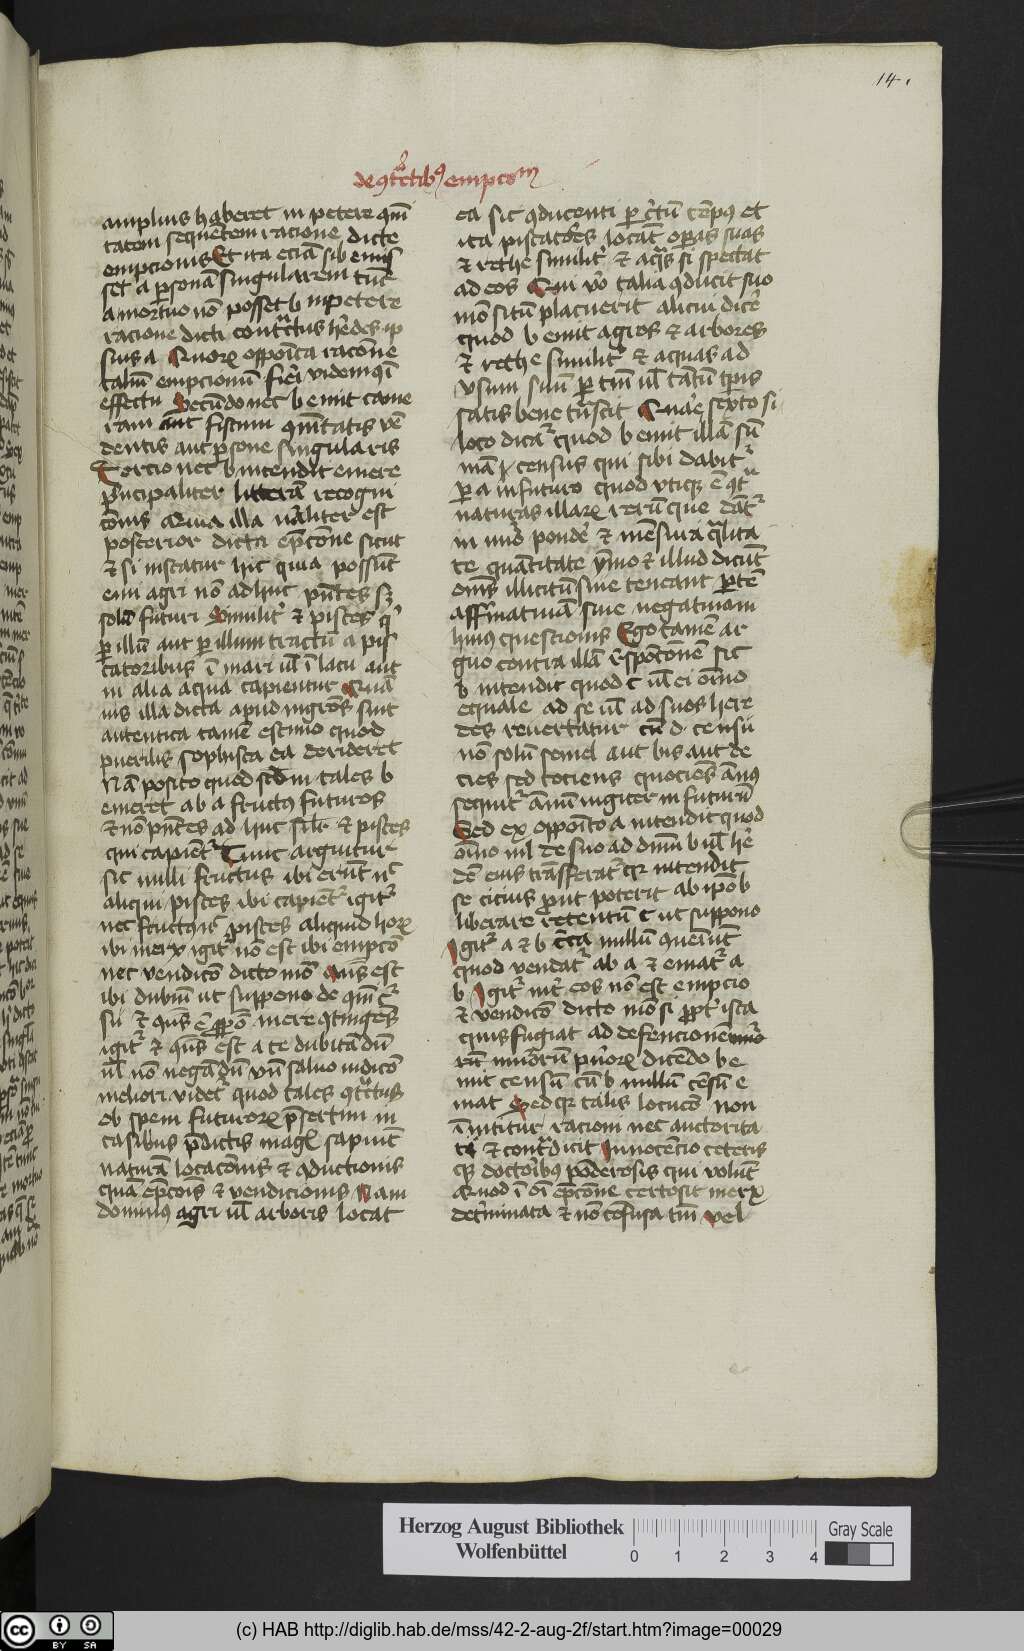 14.
de contractibus empcionum
amplius haberet in petere quanti
tatem sequentem racione dicte
empcionis Et ita eciam si b emis
set a personam singularem tunc
a mortuo non posset b inpetere
racione dicti contractus heredes ip
sius a Quorum opposita racione
talium empcionum fieri videmus in
effectu Secundo nec b emit came
ram aut fiscum quantitatis
dentis aut persone singularis
Tercio nec b intendit emere
principaliter litteram recogni
cionis Quia illa naturaliter est
posterior dicta empcione sicut
et si instatur hic quia possunt
emi agri non adhuc presentes sed
solum futuri Similiter et pisces qui
per illum aut per illum tractum a pis
catoribus in mari vel in lacu aut
in alia aqua capientur Quam
vis illa dicta apud nigros sint
autentica tamen estimo quod
puerilis sophista ea derideret
Nam posito quod in tales b
emeret ab a fructus futuros
et non presentes ad huc similiter et pisces
qui capientur Tunc arguitur
sic nulli fructus ibi erunt nec
aliqui pisces ibi capientur igitur
nec fructus nec pisces aliquid horum
ibi merx igitur non est ibi empcio
nec vendicio dicto modo est
ibi dubium ut suppono de
et mere contingens
igitur et est a te dubitandum
vel non negandum salvo iudicio
meliori videtur quod tales contractus
ob spem futurorum presertim in
casibus predictis magis sapiunt
naturam locacionis et conductionis
quam empcionis et vendicionis Nam
dominus agri vel arboris locat
ea sic conducenti per certum tempus et
ita piscatores locant operas suas
et rethe similiter et aquas si spectat
ad eos Qui vero talia conducit suo
modo situm placuerit alicui dicere
quod b emit agros et arbores
et rethe similiter et aquas ad
usum suum per tantum vel tantum temporis
satis bene transit Quare sexto si
loco dicatur quod b emit illam sum
mam census qui sibi dabitur
per a in futuro quod utique est contra
naturas illarum rerum que dantur
in numero pondere et mensura qualita
te quantitate ymmo et illud dicunt
omnes illicitum sive teneant partem
affirmativam sive negativam
huius questionis Ego tamen ar
guo contra illam responsionem sic
b intendit quod c vel ei omnino
equale ad se vel ad suos here
des revertatur cum d censu
non solum semel aut bis aut de
cies sed tociens quociens annus
sequitur annum iugiter in futurum
Sed ex opposito a intendit quod
omnino nil de suo ad dominium b vel here
dem eius transferatur quia intendit
se cicius prout poterit ab ipso b
liberare retentum c ut suppono
Igitur a et b circa nullum querunt
quod vendatur ab a et ematur a
b Igitur inter eos non est empcio
et vendicio dicto modo si propter ista
quis fugiat ad defencionem
minorum puerorum dicendo b e
mit censum cum b nullum censum e
mat Sed quia talis locucio non
innititur racioni nec auctorita
ti et contradicit Innocencio ceteris
que doctoribus ponderosis qui volunt
Quod in omni empcione certa sit merx
determinata et non confusa tantum vel
Herzog August Bibliothek
Wolfenbüttel
0 1 2 3 4
Gray Scale
cc BY SA
(c) HAB http://diglib.hab.de/mss/42-2-aug-2f/start.htm?image=00029